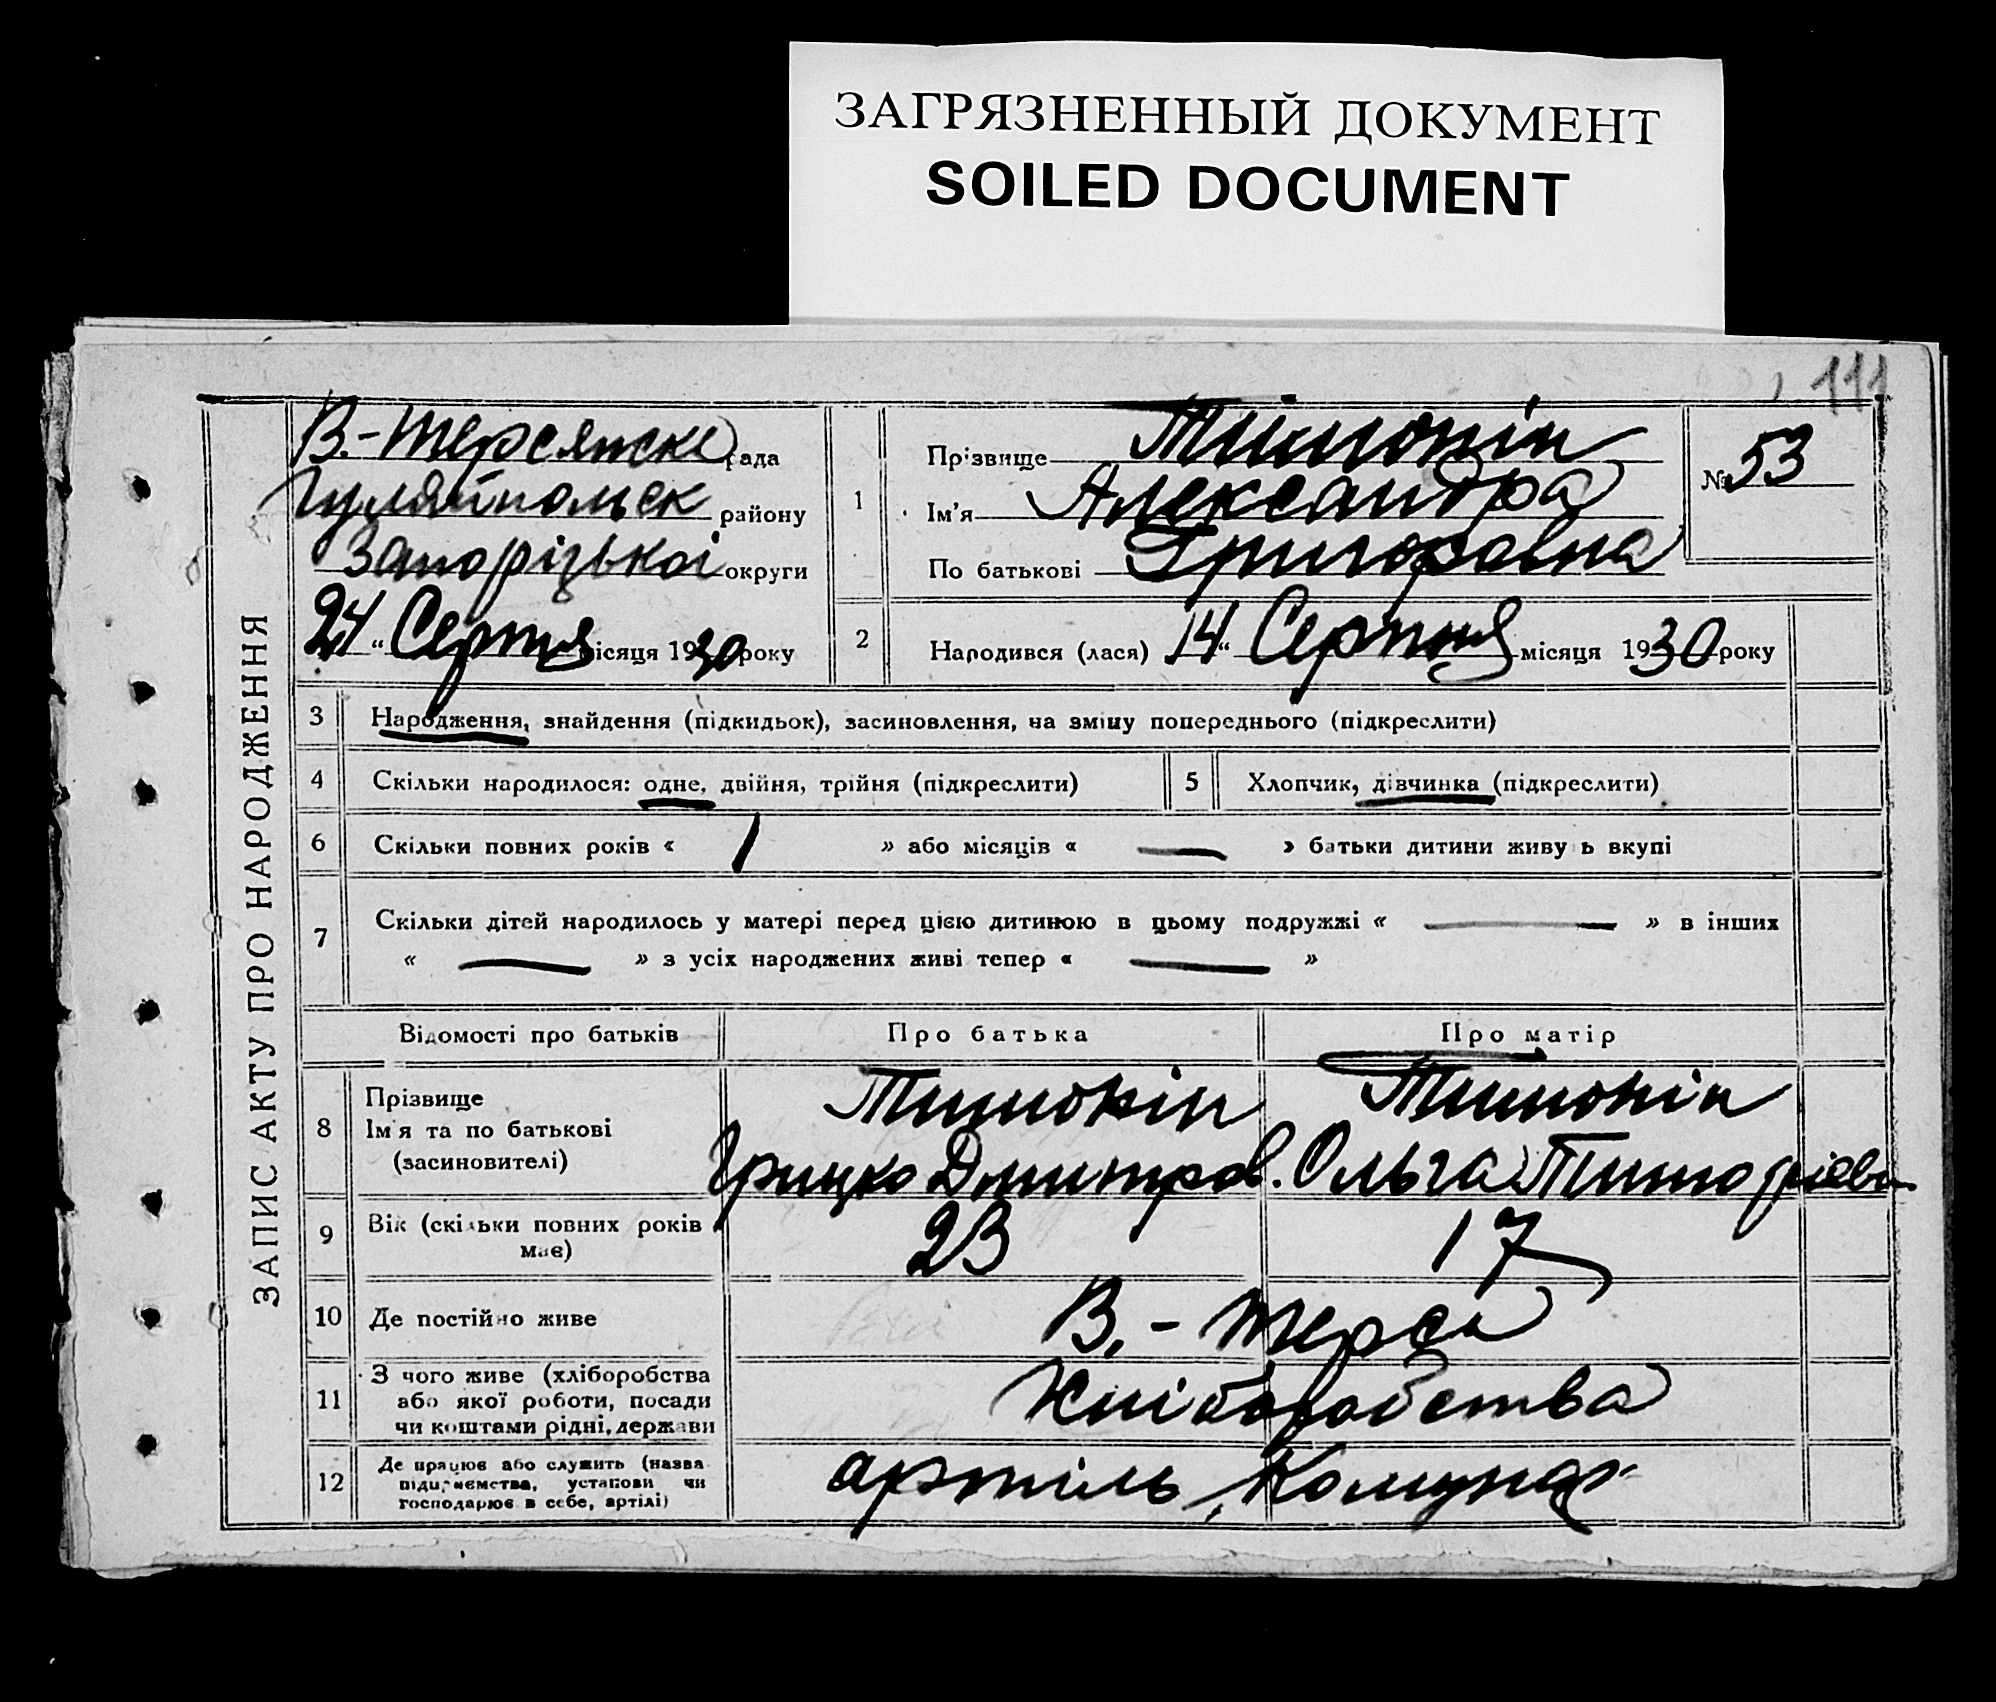 ЗАГРЯЗНЕННЫЙ ДОКУМЕНТ
SOILED DOCUMENT
111
ЗАПИС АКТУ ПРО НАРОДЖЕННЯ
В.-Терсянске рада
Гуляйпольск району
Запорізької округи
24 " Серпня місяця 1930 року
1 Прізвище Тимонін
Ім'я Александра
По батькові Григоровна
№ 53
2 Народився (лася) 14 " Серпня місяця 1930 року
3 Народження, знайдення (підкидьок), засиновлення, на зміну попереднього (підкреслити)
4 Скільки народилося: одне, двійня, трійня (підкреслити)
5 Хлопчик, дівчинка (підкреслити)
6 Скільки повних років « 1 » або місяців « — » батьки дитини живуть вкупі
7 Скільки дітей народилось у матері перед цією дитиною в цьому подружжі « — » в інших
« — » з усіх народжених живі тепер « — »
Відомості про батьків Про батька Про матір
8 Прізвище
Ім'я та по батькові
(засиновителі)
Тимонін
Грицко Дмитров.
Тимонін
Ольга Тимофіевн
9 Вік (скільки повних років
має)
23 17
10 Де постійно живе В.-Терса
11 З чого живе (хліборобства
або якої роботи, посади
чи коштами рідні, держави
Хліборобства
12 Де працює або служить (назва
підприємства, установи чи
господарює в себе, артілі)
артіль „Комунар"